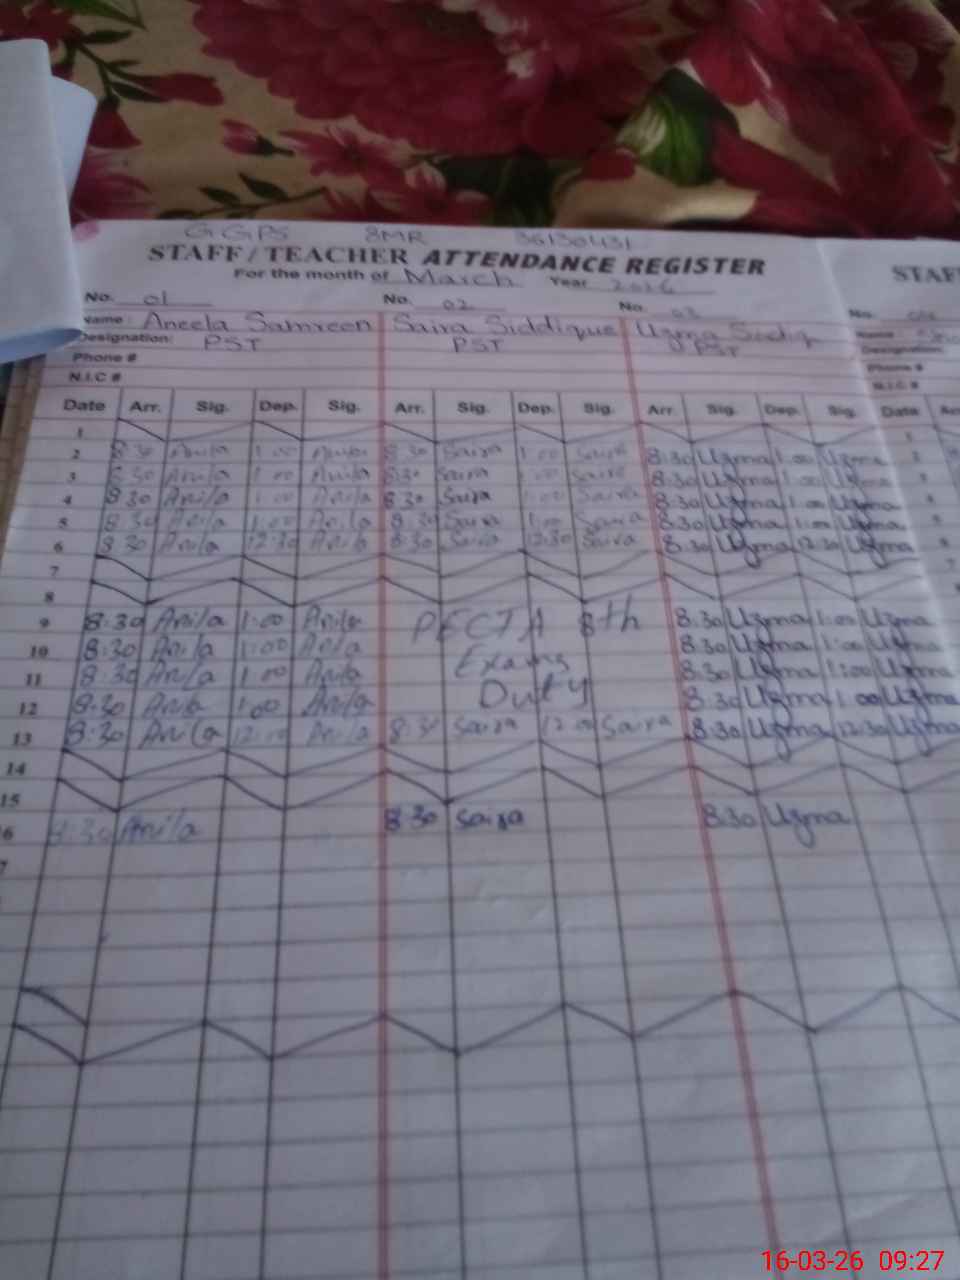 GGPS 8MR 36130431
STAFF/TEACHER ATTENDANCE REGISTER STAF
For the month of March Year 2026
No. 01 No. 02 No. 03 No.
Name: Aneela Samreen Saira Siddique Uzma Siddiq
Designation: PST PST PST
Phone # Phone #
N.I.C # N.I.C #
Date Arr. Sig. Dep. Sig. Arr. Sig. Dep. Sig. Arr. Sig. Dep. Sig. Date Arr
1 1
2 8:30 Anila 1:00 Anila 8:30 Saira 1:00 Saira 8:30 Uzma 1:00 Uzma 2
3 8:30 Anila 1:00 Anila 8:30 Saira 1:00 Saira 8:30 Uzma 1:00 Uzma
4 8:30 Anila 1:00 Anila 8:30 Saira 1:00 Saira 8:30 Uzma 1:00 Uzma
5 8:30 Anila 1:00 Anila 8:30 Saira 1:00 Saira 8:30 Uzma 1:00 Uzma
6 8:30 Anila 12:30 Anila 8:30 Saira 12:30 Saira 8:30 Uzma 12:30 Uzma
7 7
8
9 8:30 Anila 1:00 Anila PECTA 8th 8:30 Uzma 1:00 Uzma
10 8:30 Anila 1:00 Anila Exams 8:30 Uzma 1:00 Uzma
11 8:30 Anila 1:00 Anila Duty 8:30 Uzma 1:00 Uzma
12 8:30 Anila 1:00 Anila 8:30 Uzma 1:00 Uzma
13 8:30 Anila Anila 8:30 Saira Saira 8:30 Uzma 12:30 Uzma
14
15
6 8:30 Anila 8:30 Saira 8:30 Uzma
7
16-03-26 09:27